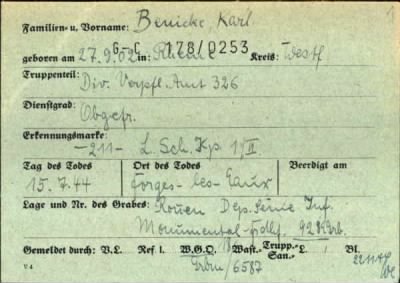 1
Familien- u. Vorname: Benicke Karl
6-C 178/0253
geboren am 27.9.02 in Rheine Kreis: Westf
Truppenteil: Div. Verpfl. Amt 326
Dienstgrad: Obgefr.
Erkennungsmarke:
-211- L. Sch. Kp 17/II
Tag des Todes Ort des Todes Beerdigt am
15.7.44 Forges-les-Eaux
Lage und Nr. des Grabes: Rouen Dep. Seine Inf.
Monumental-Fdhf.
Gemeldet durch: V.L. Ref I. W.G.O. Wast.- Trupp.- San.- L. Bl.
6587
V 4